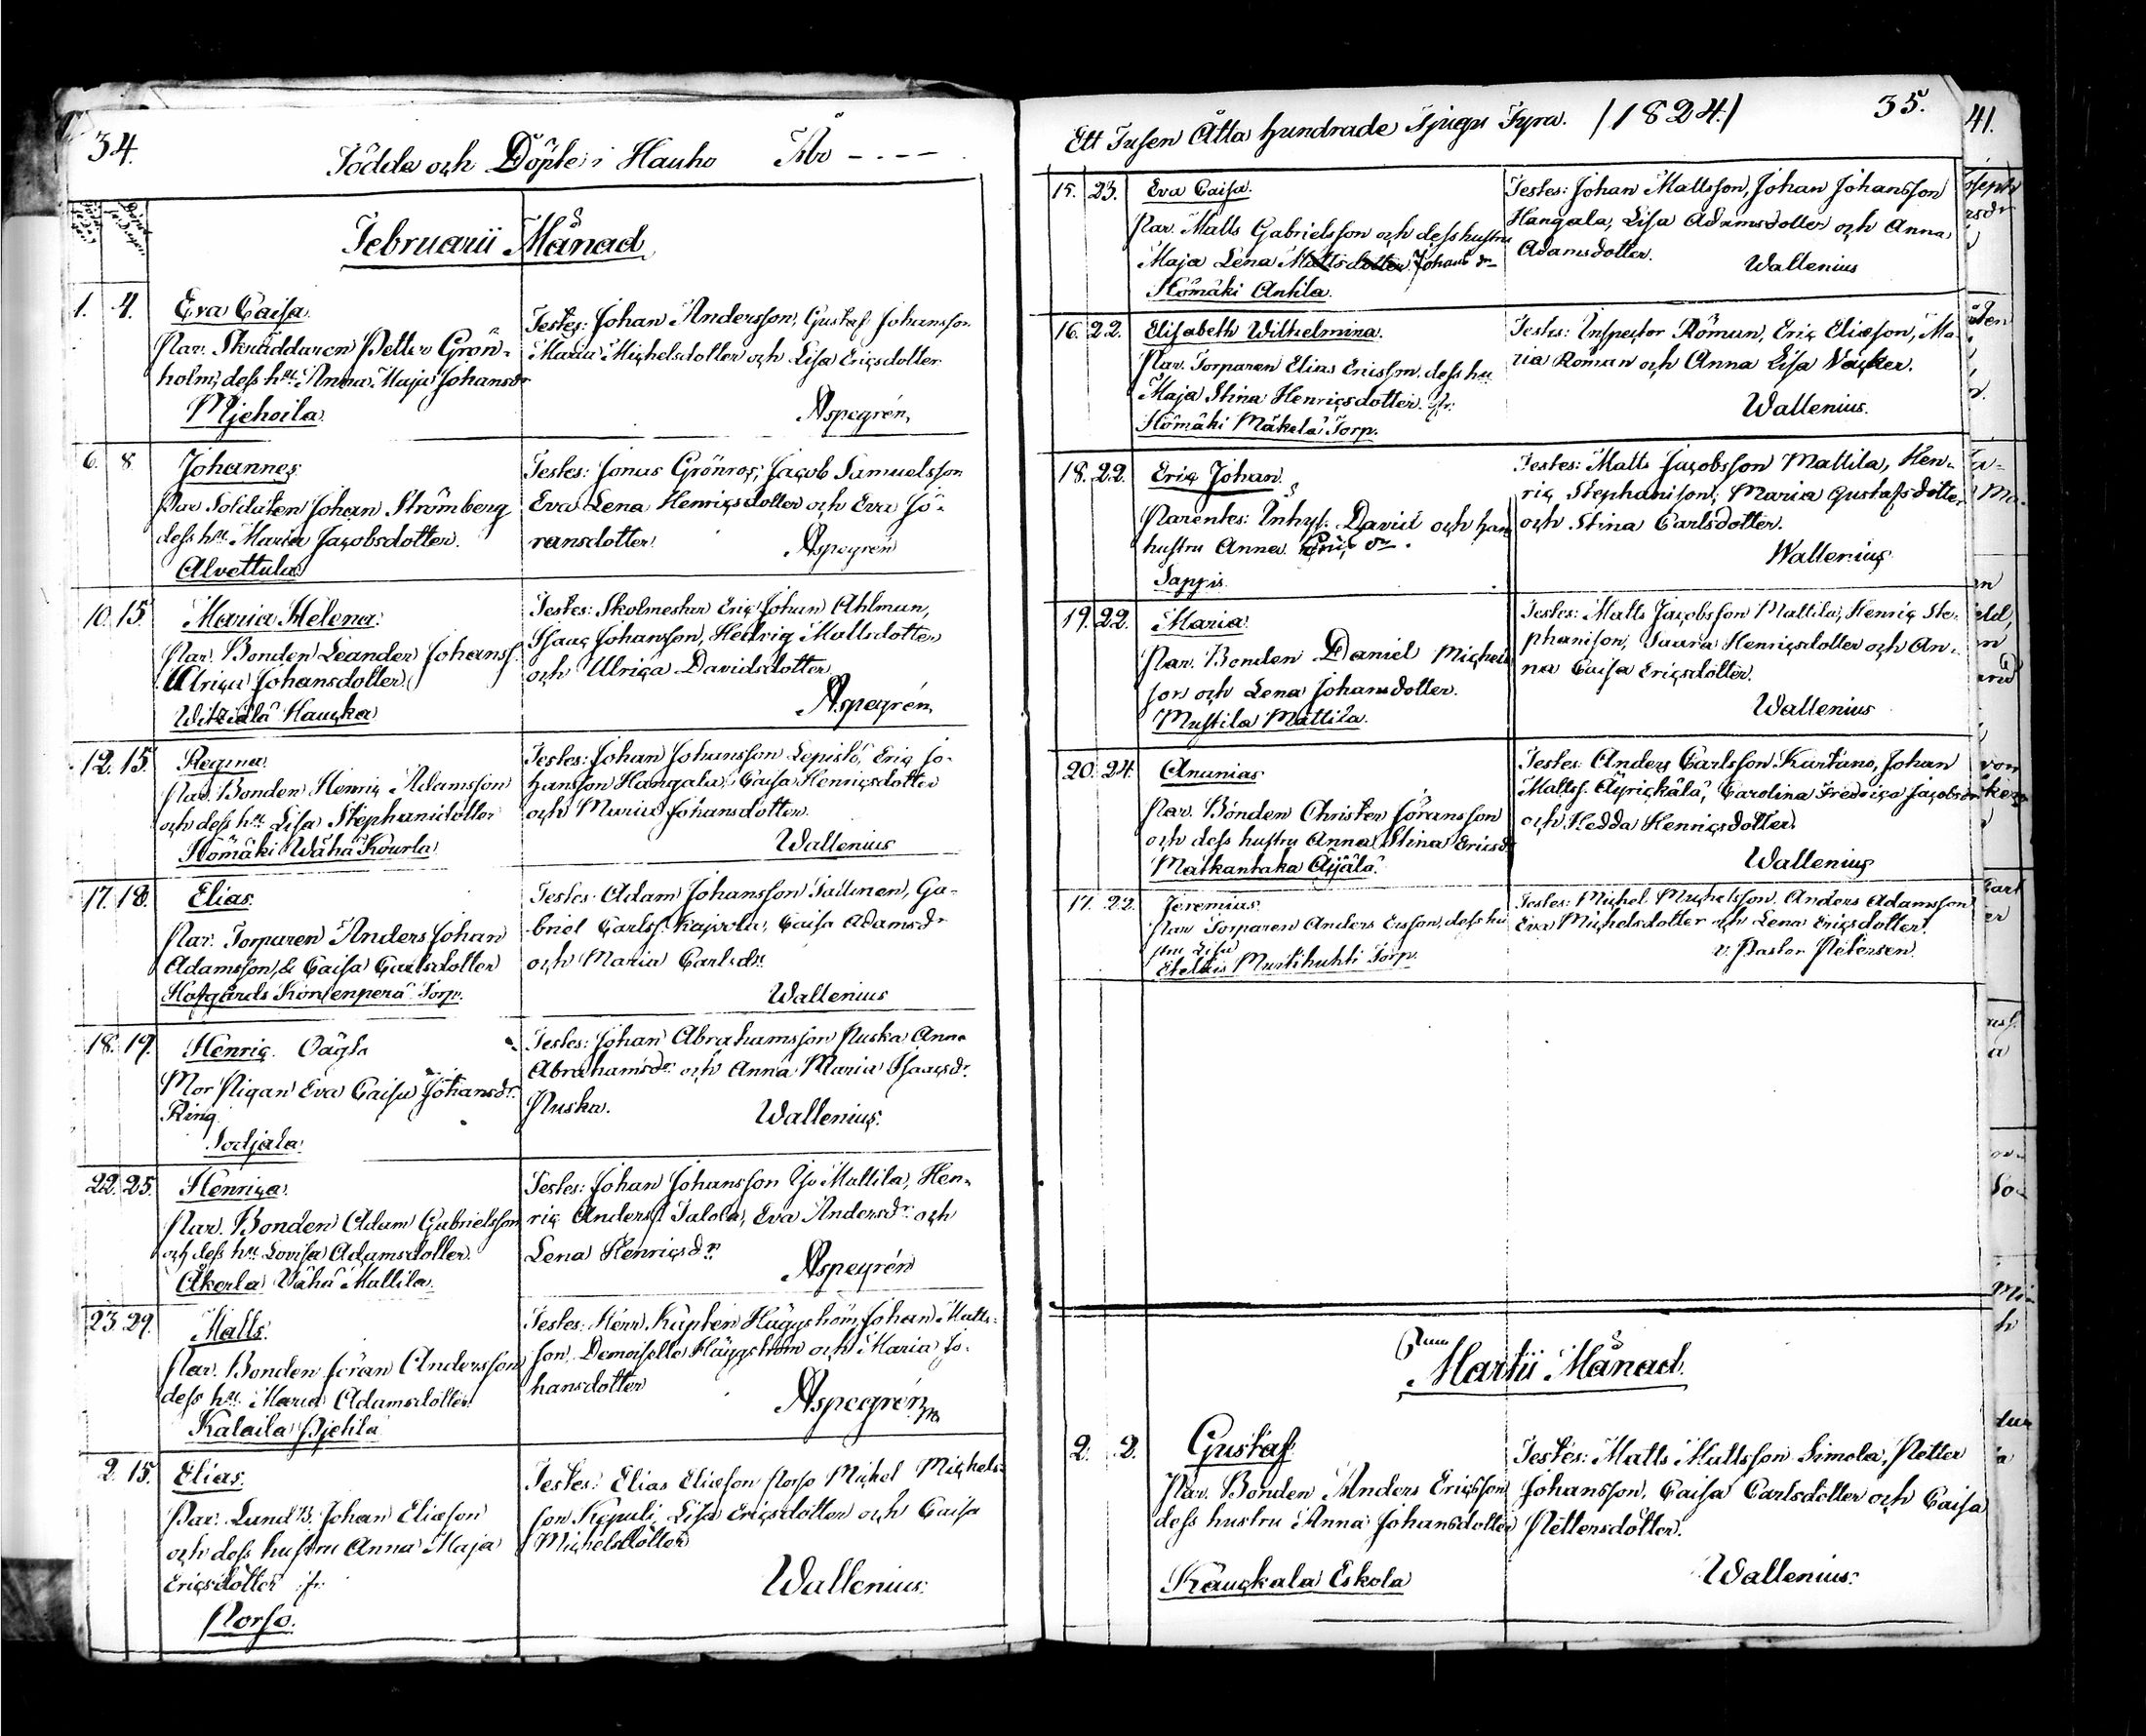 34.
Födde och Döpte i Hauho Åbo - - - -
Februarii Månad
1. 4. Eva Caisa.
Par. Skräddaren Petter Grön-
holm, dess hu. Anna Maja Johansdr
Mjehoila.
Testes: Johan Andersson, Gustaf Johansson
Maria Michelsdotter och Lisa Ericsdotter
Aspegrén
6. 8 Johannes.
Par. Soldaten Johan Strömberg
dess hu. Maria Jacobsdotter.
Alvettula.
Testes: Jonas Grönros, Jacob Samuelsson
Eva Lena Henricsdotter och Eva Jö-
ransdotter.
Aspegrén
10. 15. Maria Helena.
Par. Bonden Leander Johanss.
Ulrica Johansdotter.
Witziälä Haucka
Testes: Skolmestar Eric Johan Ahlman,
Isaac Johansson, Hedvig Mattsdotter
och Ulrica Davidsdotter
Aspegrén
12. 15. Regina.
Par. Bonden Henric Adamsson
och dess hu. Lisa Stephanidotter
Hömäki Wähä Kourla.
Testes: Johan Johansson Lepistö, Eric Jo-
hansson Hangala, Caisa Henricsdotter
och Maria Johansdotter.
Wallenius
17. 18. Elias.
Par. Torparen Anders Johan
Adamsson, & Caisa Carlsdotter
Hofgårds Kontenperä Torp.
Testes. Adam Johansson Sallinen, Ga-
briel Carlss. Kajvola, Caisa Adamsdr
och Maria Carlsdr.
Wallenius
18. 19. Henric. Oägta
Mor Pigan Eva Caisa Johansdr.
Ring.
Sotjala.
Testes: Johan Abrahamsson Puska Anna
Abrahamsdr. och Anna Maria Isaacsdr.
Puska. Wallenius.
22. 25. Henrica.
Par. Bonden Adam Gabrielsson
och dess hu. Lovisa Adamsdotter.
Åkerla Wähä Mattila.
Testes: Johan Johansson Iso Mattila, Hen-
ric Anderss. Talola, Eva Andersdr. och
Lena Henricsdr.
Aspegrén
23 29. Matts.
Par. Bonden Jöran Andersson
dess hu. Maria Adamsdotter
Kalaila Pjehla
Testes: Herr Kapten Häggström, Johan Matts-
son, Demoiselle Häggström och Maria Jo-
hansdotter
Aspegrén
2. 15. Elias.
Par. Lund B. Johan Eliæson
och dess hustru Anna Maja
Ericsdotter
Porso.
Testes: Elias Eliæson Porso Michel Michels-
son Kepuli, Lisa Ericsdotter och Caisa
Michelsdotter
Wallenius.
Ett Tusen Åtta hundrade Tjugu Fyra. /1824./ 35.
15. 23. Eva Caisa.
Par. Matts Gabrielsson och dess hustru
Maja Lena Mattsdotter Johansdr
Hömäki Antila.
Testes: Johan Mattsson, Johan Johansson
Hangala, Lisa Adamsdotter och Anna
Adamsdotter.
Wallenius
16. 22. Elisabeth Wilhelmina.
Par. Torparen Elias Ericsson. dess hu
Maja Stina Henricsdotter.
Hömäki Mäkelä Torp.
Testes: Inspector Römun, Eric Eliæson, Ma-
ria Roman och Anna LisaVäcker.
Wallenius.
18. 22. Eric Johan.
Parentes: Inhys. David och hans
hustru Anna Ericsdr.
Sappis.
Testes: Matts Jacobsson Mattila, Hen-
ric Stephanison, Maria Gustafsdotter
och Stina Carlsdotter.
Wallenius
19. 22. Maria.
Par. Bonden Daniel Michels
son och Lena Johansdotter.
Mustila Mattila.
Testes: Matts Jacobsson Mattila, Henric Ste-
phanison, Saara Henricsdotter och An-
na Caisa Ericsdotter.
Wallenius
20. 24. Ananias
Par. Bonden Christer Jöransson
och dess hustru Anna Stina Ericsd
Matkantaka Äijälä.
Testes. Anders Carlsson Kartano, Johan
Mattss. Äyrickälä, Carolina Fredrica Jacobsdr
och Hedda Henricsdotter.
Wallenius
17. 22. Jeremias.
Par Torparen Anders Ersson, dess hu
stru Lisa
Eteläis Mustikuhti Torp.
Testes: Michel Michelsson. Anders Adamsson
Eva Michelsdotter och Lena Ericsdotter.
v. Pastor Petersen.
Martii Månad.
2. 2. Gustaf.
Par. Bonden Anders Ericsson
dess hustru Anna Johansdotter
Käuckala Eskola
Testes: Matts Mattsson Simola, Petter
Johansson, Caisa Carlsdotter och Caisa
Pettersdotter.
Wallenius.
41.